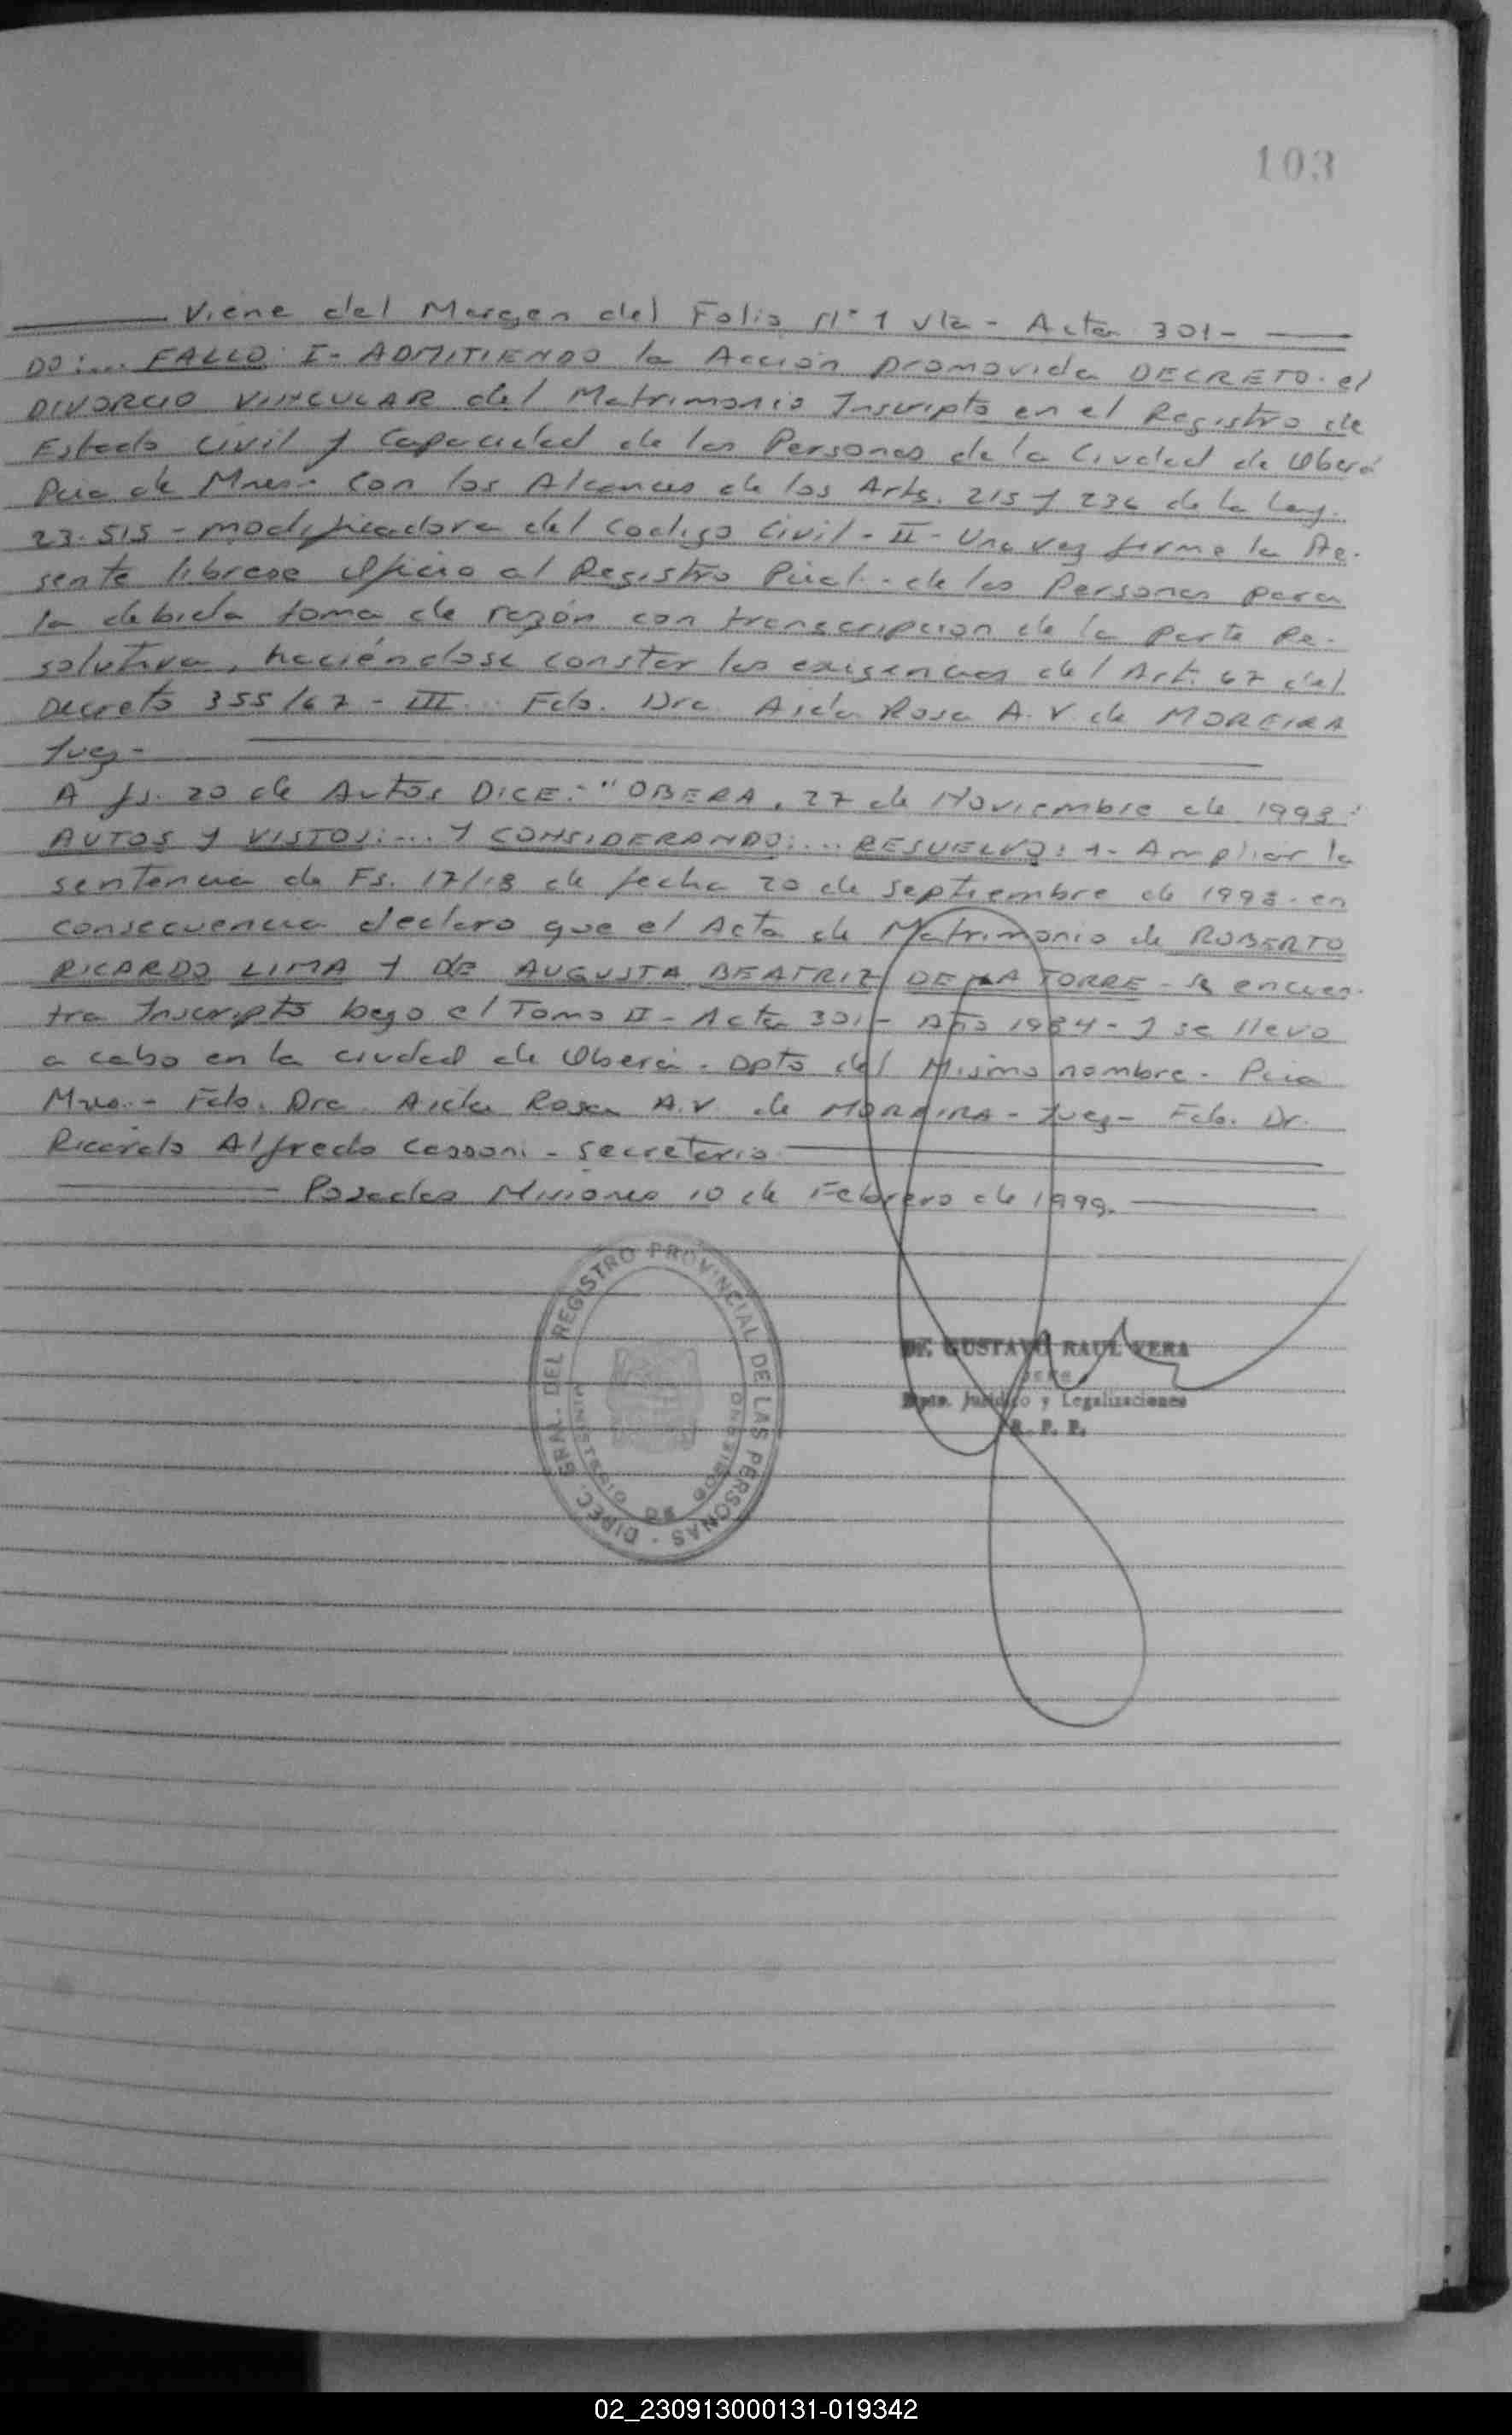 103
Viene del Margen del Folio N° 1 vta - Acta 301-
DO:... FALLO: I- ADMITIENDO la Acción promovida DECRETO. el
DIVORCIO VINCULAR del Matrimonio Inscripto en el Registro de
Estado Civil y Capacidad de las Personas de la Ciudad de Oberá
Pcia de Mnes. Con los Alcances de los Arts. 215 y 236 de la Ley.
23.515 - modificadora del Codigo Civil - II - Una vez firme la Pre-
sente librese Oficio al Registro Pcial. de las Personas para
la debida toma de razón con transcripcion de la parte Re-
solutiva, haciéndose constar las exigencias del Art. 67 del
Decreto 355/67 - III... Fdo. Dra. Aida Rosa A. V de MOREIRA
Juez-
A fs. 20 de Autos DICE: "OBERA, 27 de Noviembre de 1998:
AUTOS Y VISTOS:... Y CONSIDERANDO:... RESUELVO: 1- Ampliar la
sentencia de Fs. 17/18 de fecha 20 de septiembre de 1998. en
consecuencia declaro que el Acta de Matrimonio de ROBERTO
RICARDO LIMA Y DE AUGUSTA BEATRIZ DE LA TORRE - se encuen-
tra Inscripto bajo el Tomo II - Acta 301 - Año 1984 - y se llevo
a cabo en la ciudad de Oberá. Dpto del Mismo nombre. Pcia
Mnes. - Fdo. Dra. Aida Rosa A.V. de MOREIRA - Juez - Fdo. Dr.
Ricardo Alfredo Cassoni - Secretario
Posadas Misiones 10 de Febrero de 1999.
DIREC. GRAL. DEL REGISTRO PROVINCIAL DE LAS PERSONAS
MINISTERIO DE GOBIERNO
DR. GUSTAVO RAUL VERA
JEFE
Dpto. Jurídico y Legalizaciones
R. P. P.
02_230913000131-019342